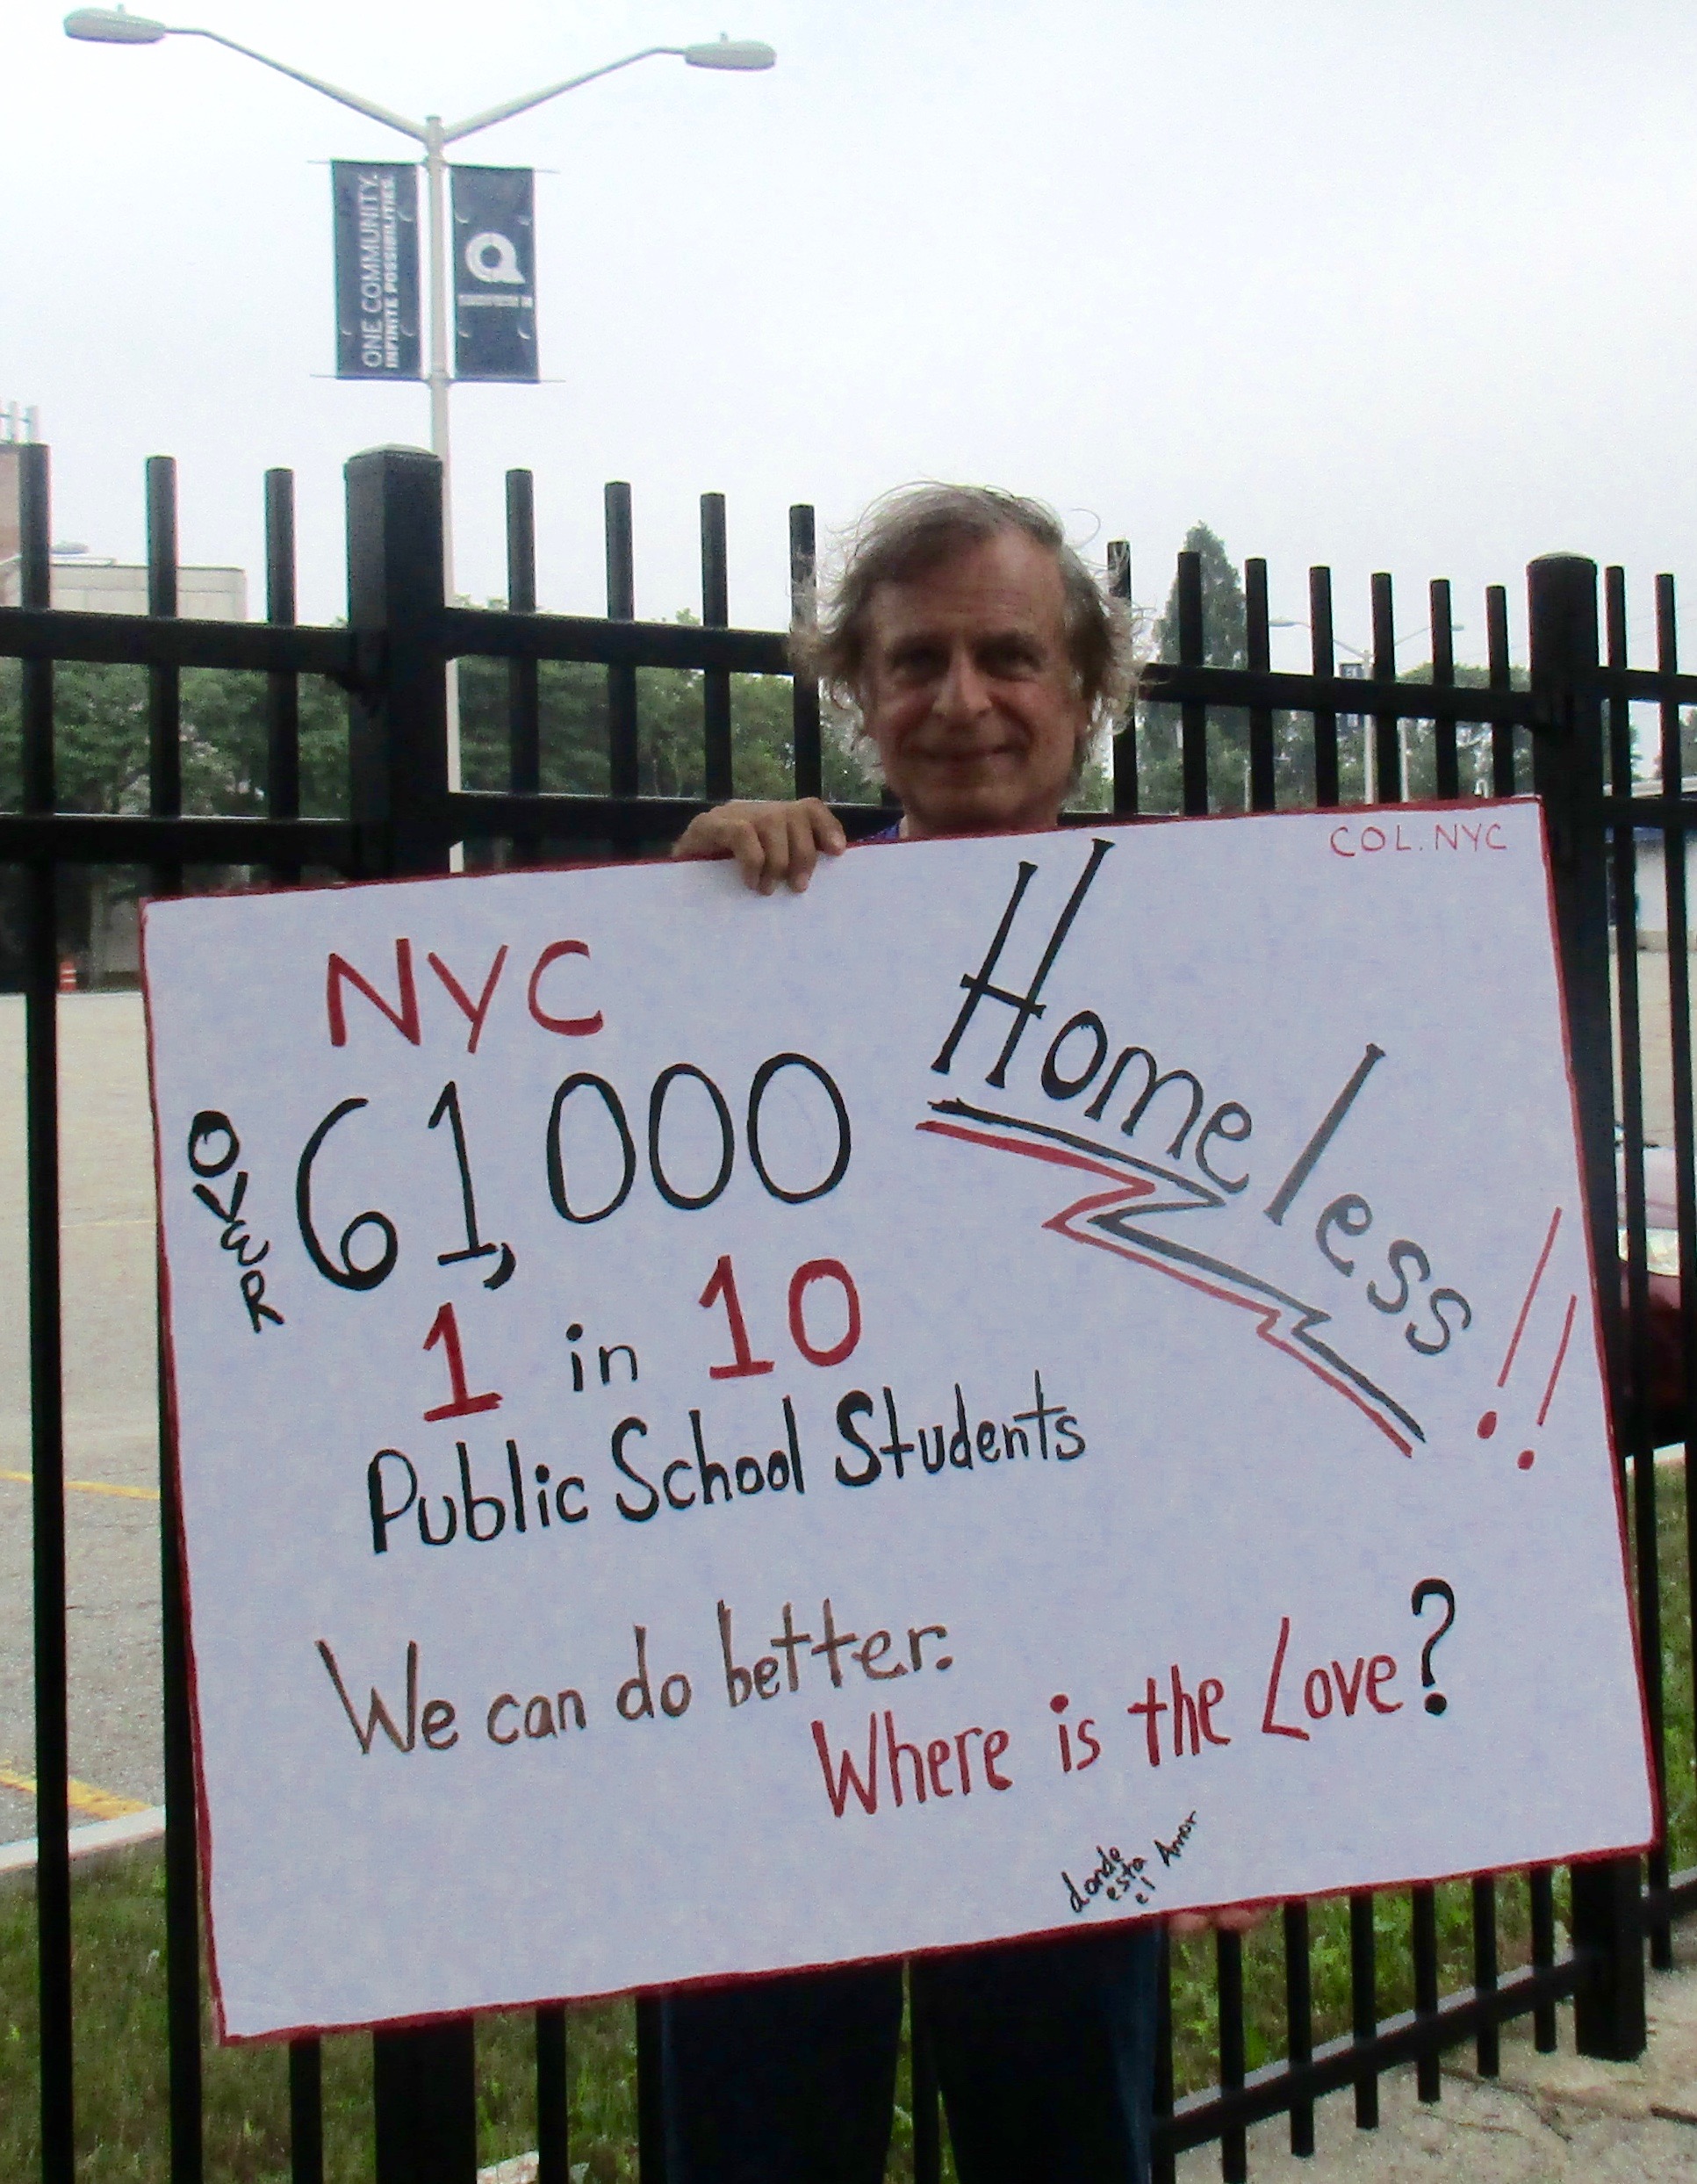 ONE COMMUNITY.
INFINITE POSSIBILITIES.
COL. NYC
NYC
OVER
61,000
Homeless!!
1 in 10
Public School Students
We can do better.
Where is the Love?
donde
esta
el Amor